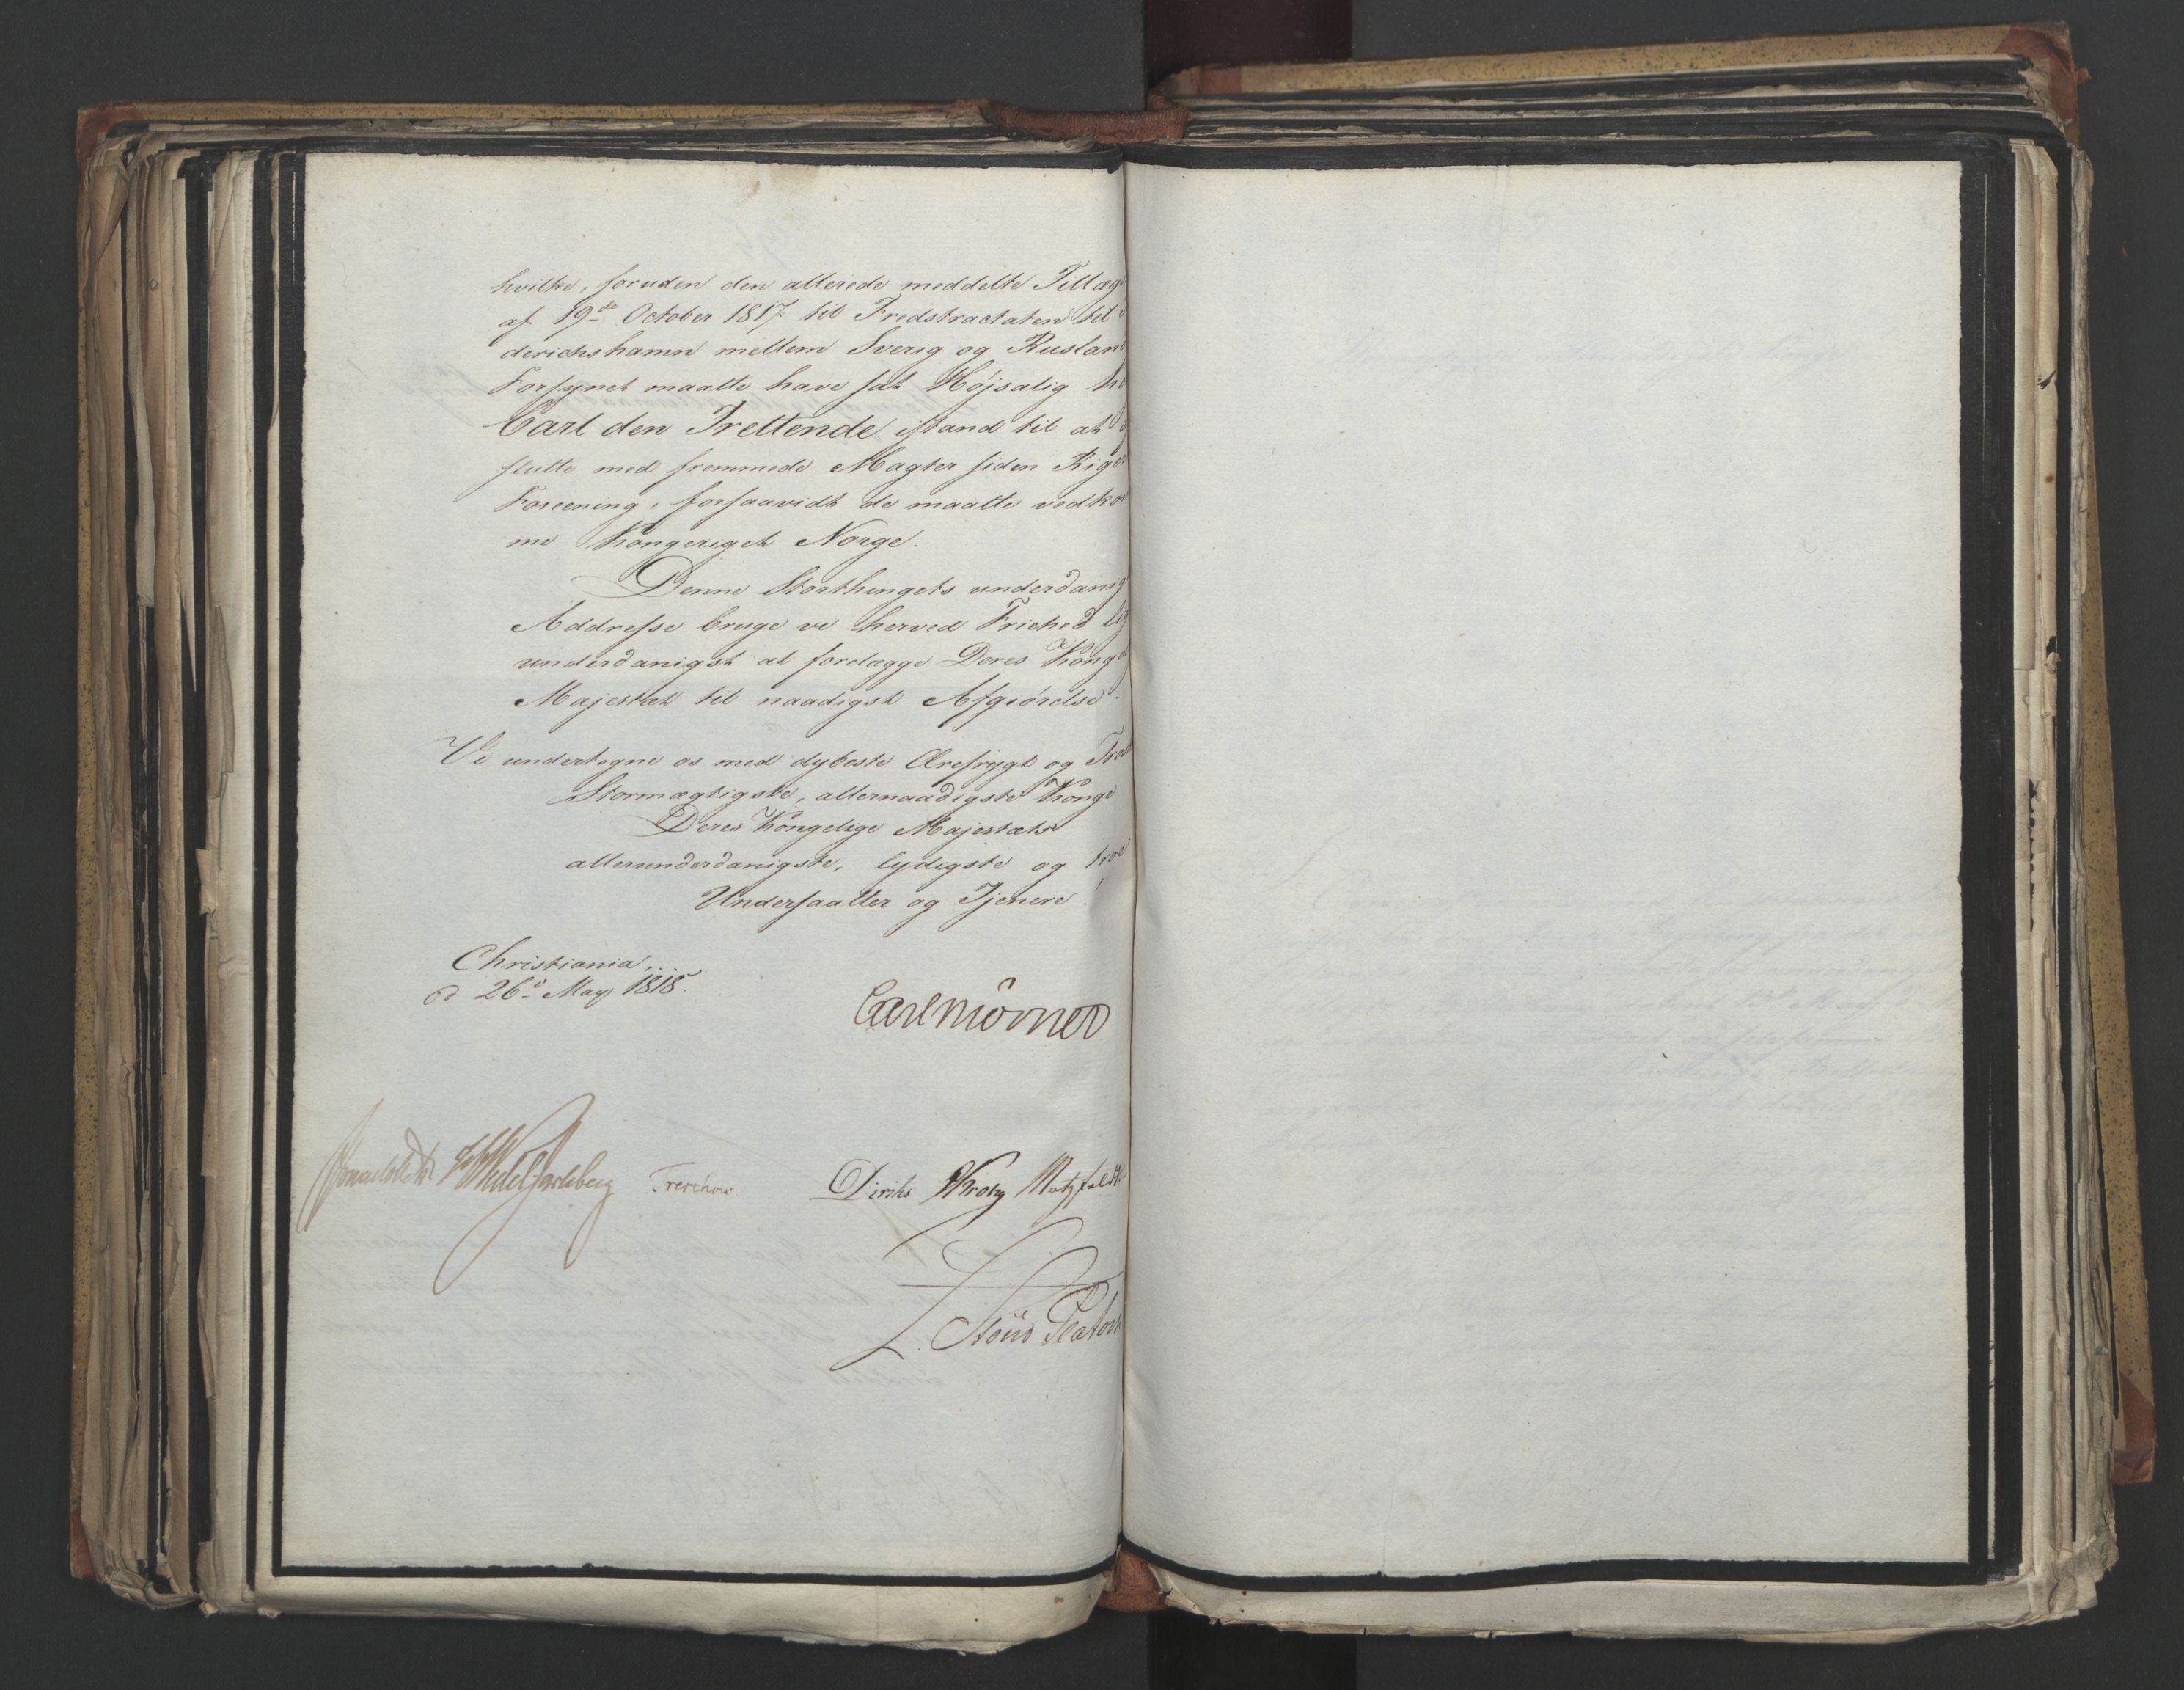 hvilke, foruden den allerede meddelte Tillag
af 19de October 1817 til Fredstractaten til
derichshamn mellem Sverig og Rusland
Forsynet maatte have sat Højsalig
Carl den Trettende istand til at
slutte med fremmede Magter siden Rige
Foreening, forsaavidt de maatte vedko
me Kongeriget Norge.
Denne Storthingets underdanig
Addresse bruge vi herved Friehed
underdanigst at forelægge Deres Konge
Majestæt til naadigst Afgiørelse.
Vi undertegne os med dybeste Ærefrygt og Tro
Stormægtigste, allernaadigste Konge
Deres Kongelige Majestæts
allerunderdanigste, lydigste og troe
Undersaatter og Tjenere!
Christiania,
d 26d May 1818.
Carl Mörner
Sommerhielm Wedel Jarlsberg Treschow Diriks Krog Motzfeldt
L. Stoud Platou